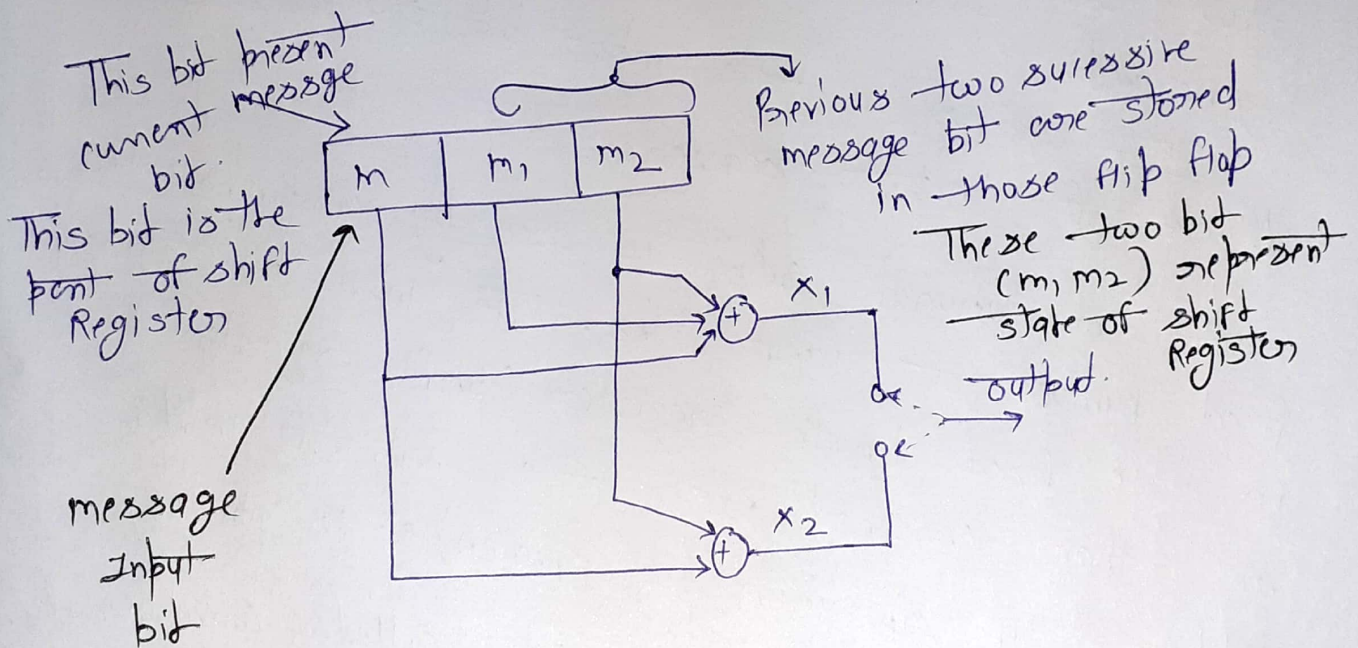 This bit present
current message
bit.
This bit is the
part of shift
Register
m
m1
m2
Previous two sucessive
message bit are stored
in those flip flop
These two bit
(m1 m2) represent
state of shift
Register
+
x1
output.
+
x2
message
Input
bit